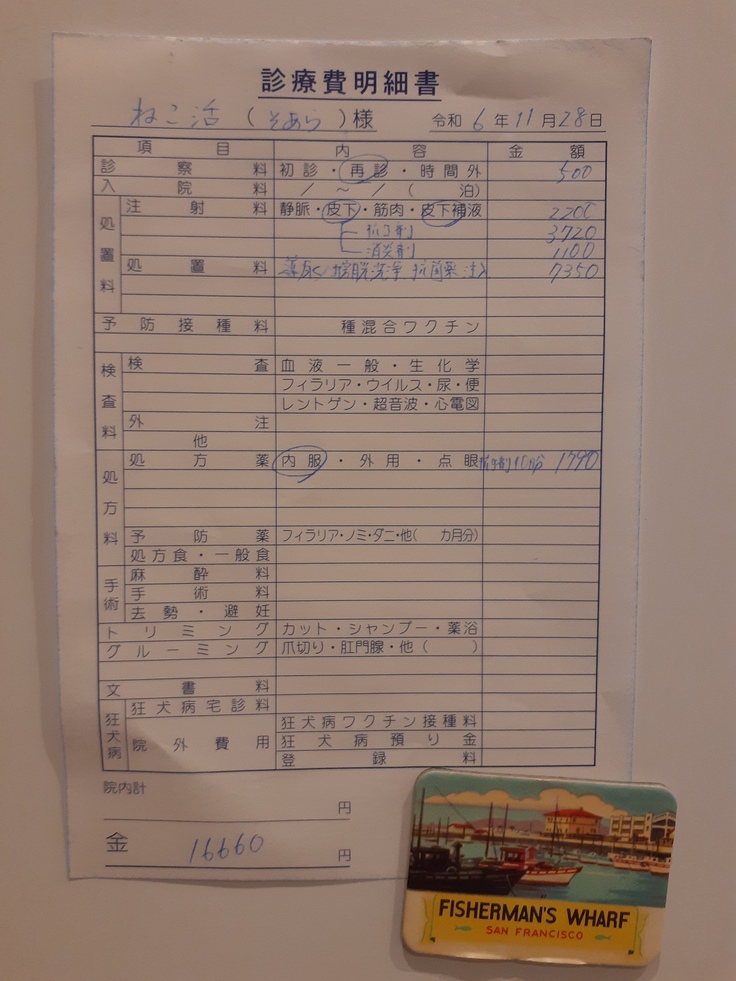 診療費明細書
ねこ活 (そあら) 様 令和 6 年 11 月 28 日
項目 内容 金額
診察料 初診・再診・時間外 500
入院料 / ～ / ( 泊)
処置料 注射料 静脈・皮下・筋肉・皮下補液 2200
抗生剤 3720
消炎剤 1100
処置料 導尿 膀胱洗浄 抗菌薬 注入 7350
予防接種料 種混合ワクチン
検査料 検査 血液一般・生化学
フィラリア・ウイルス・尿・便
レントゲン・超音波・心電図
外注
他
処方料 処方薬 内服・外用・点眼 1790
予防薬 フィラリア・ノミ・ダニ・他( カ月分)
処方食・一般食
手術 麻酔料
手術料
去勢・避妊
トリミング カット・シャンプー・薬浴
グルーミング 爪切り・肛門腺・他( )
文書料
狂犬病 狂犬病宅診料
院外費用 狂犬病ワクチン接種料
狂犬病預り金
登録料
院内計 円
金 16660 円
FISHERMAN'S WHARF
SAN FRANCISCO